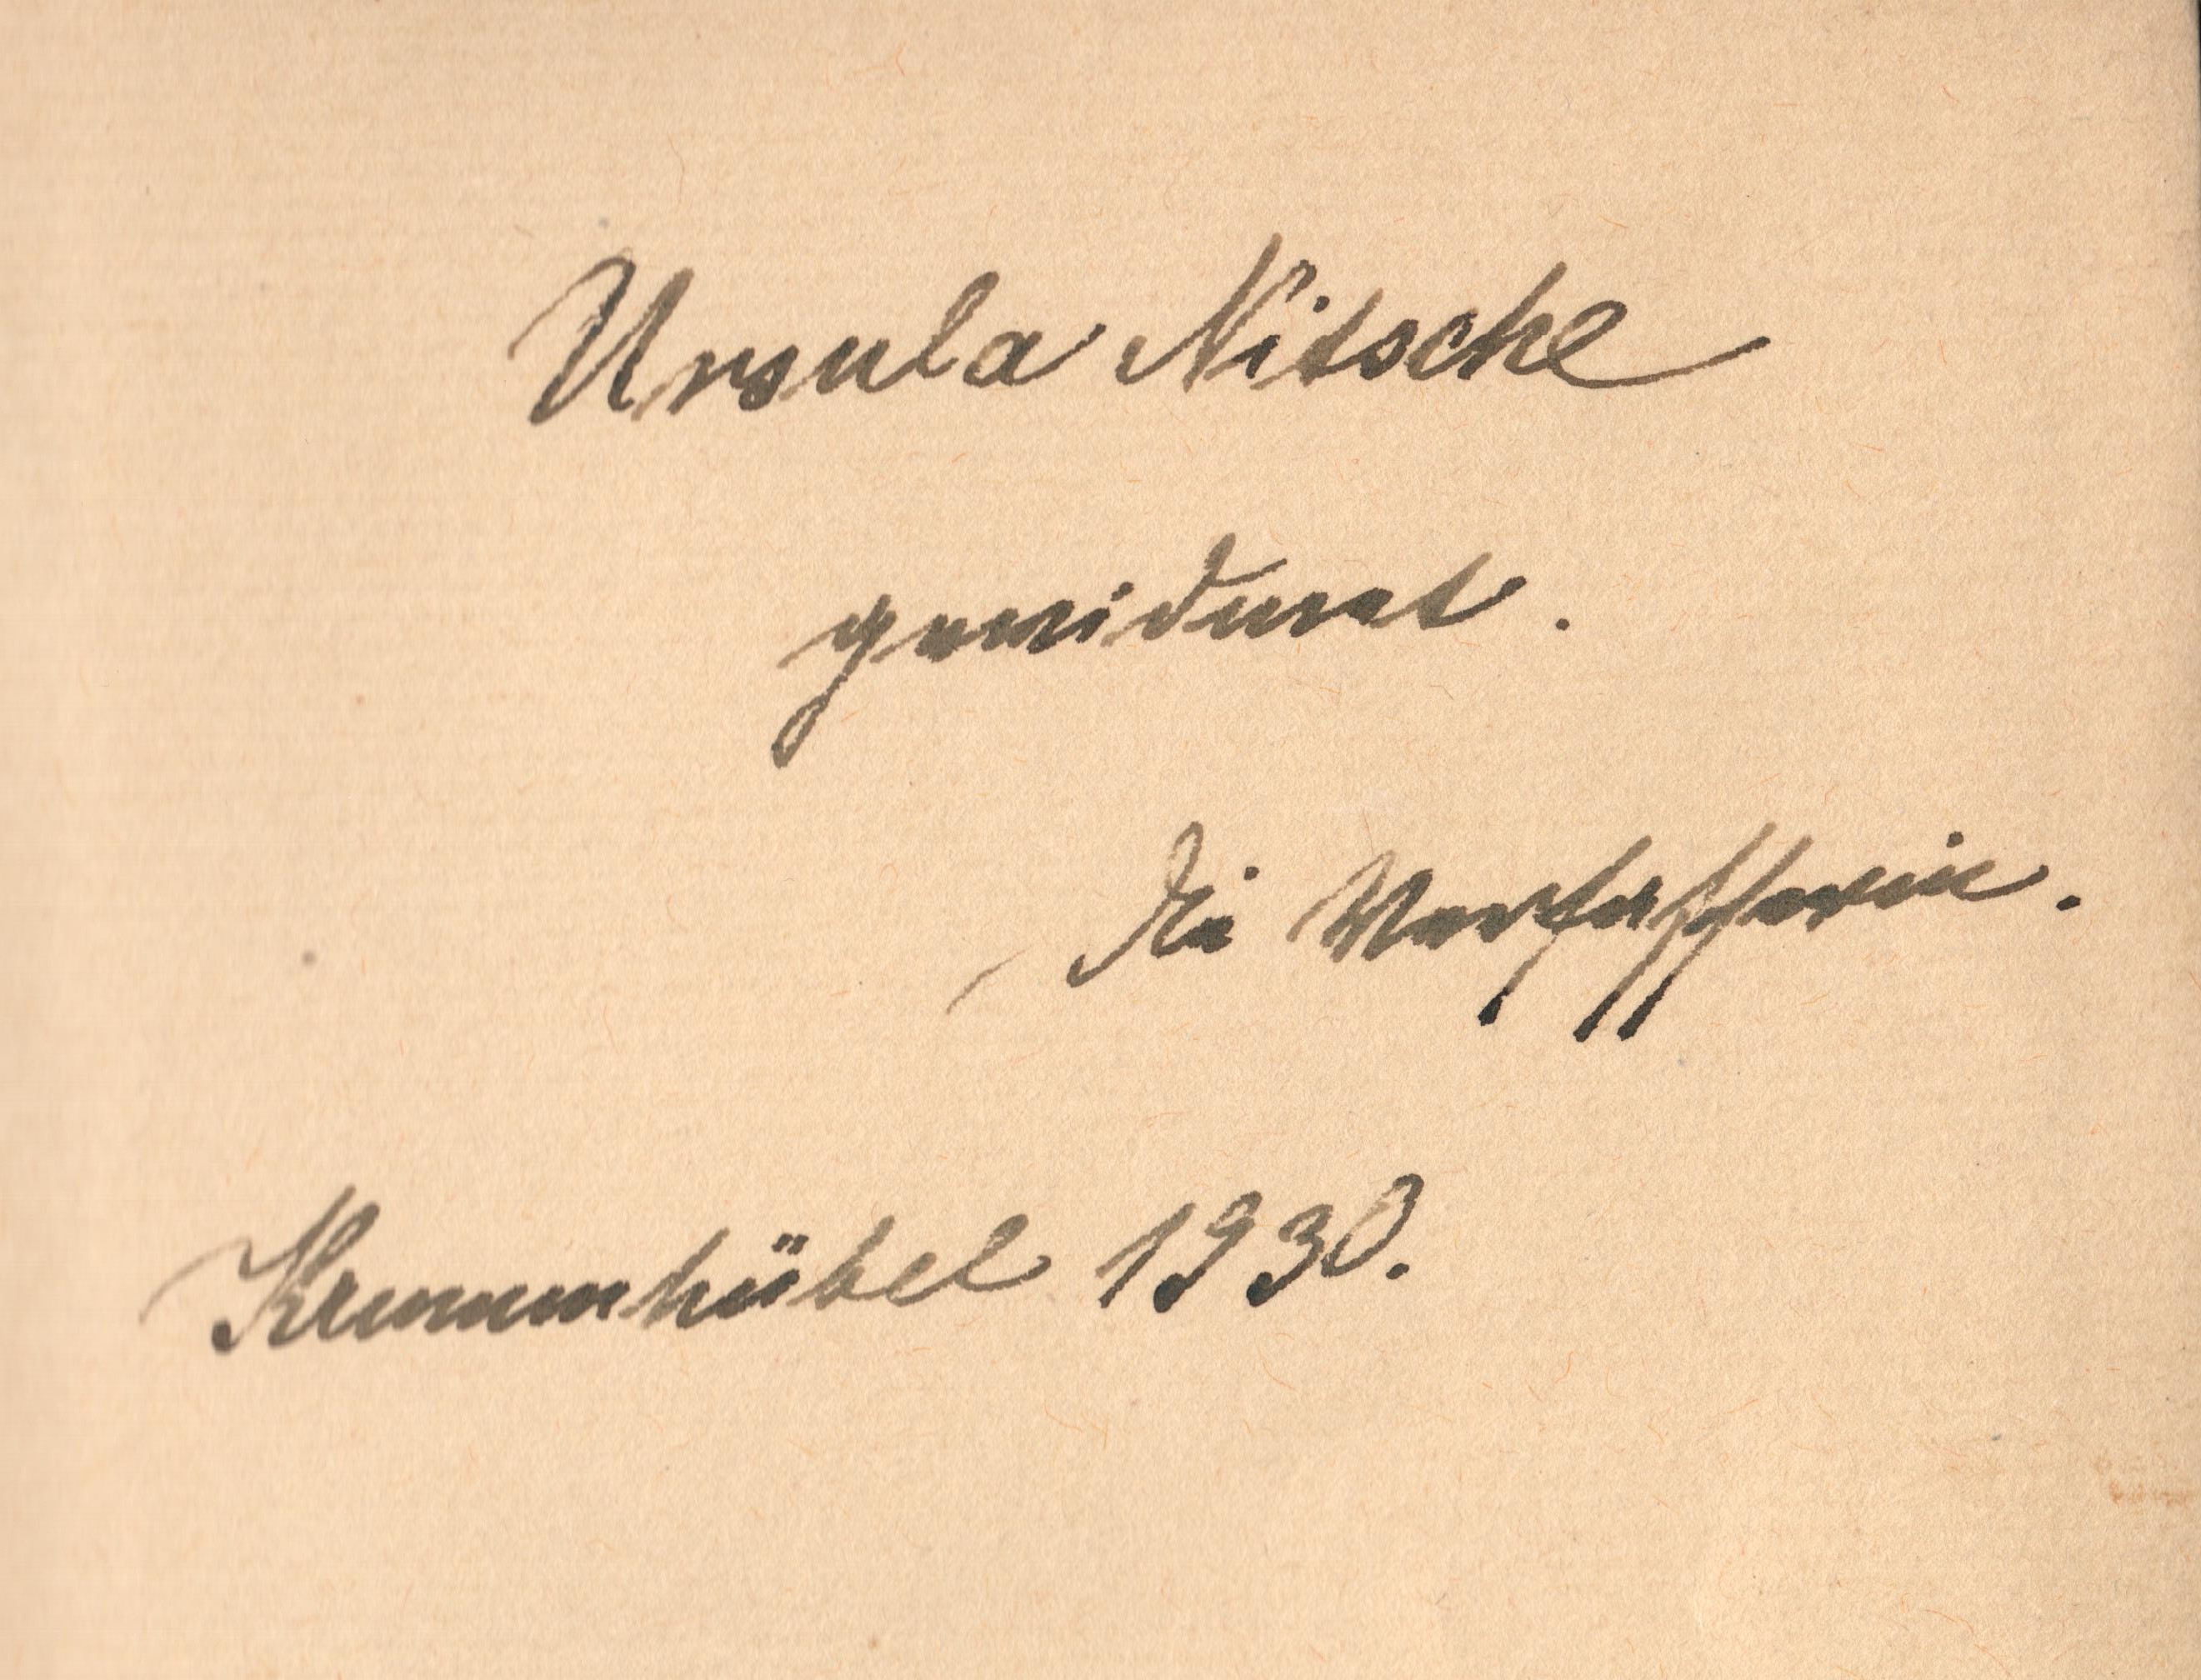 Ursula Nitsche
gewidmet.
Die Verfasserin.
Krummhübel 1930.